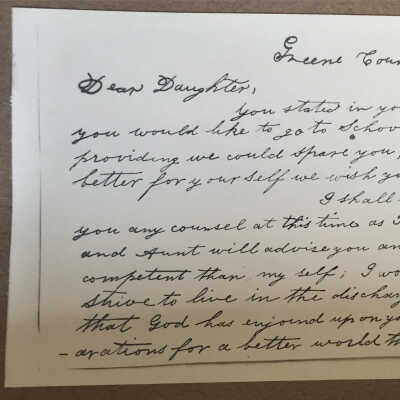 Greene Coun
Dear Daughter,
you stated in yo
you would like to go to Schoo
providing we could spare you,
better for your self we wish yo
I shall
you any counsel at this time as I
and Aunt will advise you an
competent than my self; I wo
strive to live in the dischar
that God has enjoind upon yo
-arations for a better world th